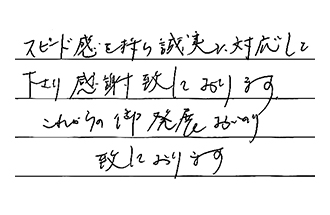 スピード感を持ち誠実に対応して
下さり感謝致しております。
これからの御発展お祈り
致しております